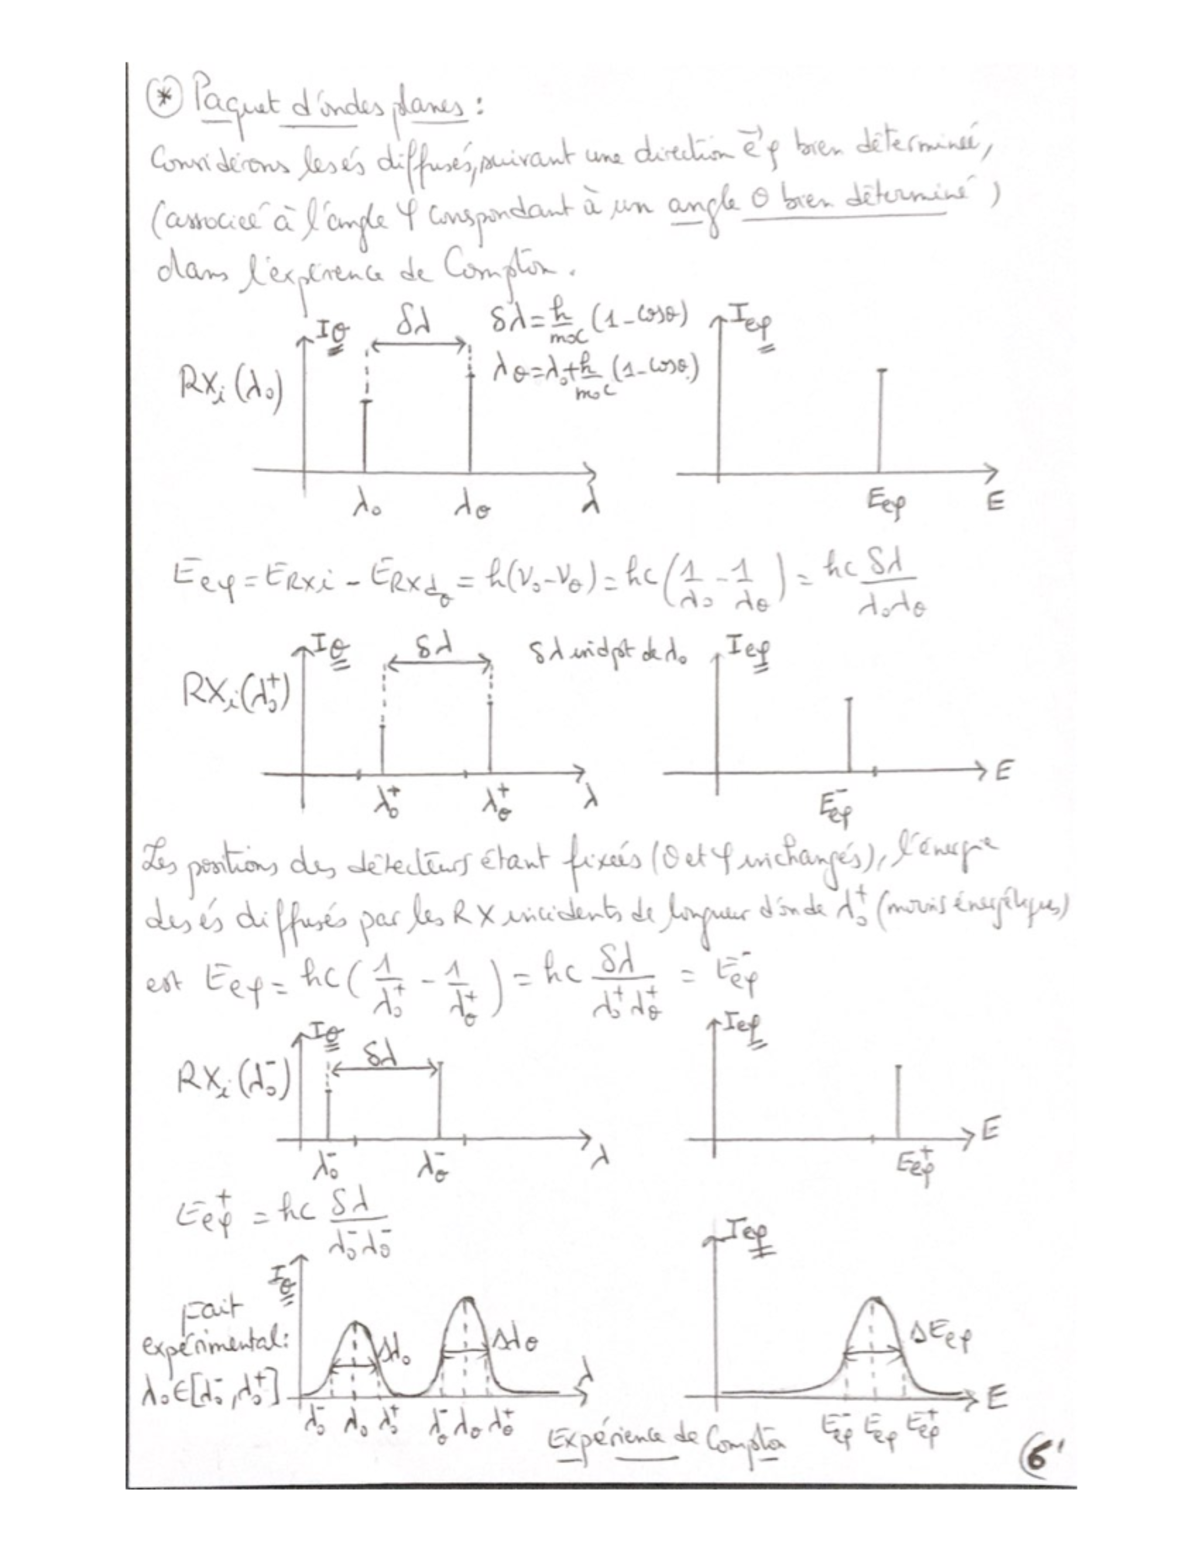 (*) Paquet d'ondes planes :
Considérons les és diffusés, suivant une direction e⃗φ bien déterminée,
(associée à l'angle φ correspondant à un angle θ bien déterminé)
dans l'expérience de Compton.
Iθ δλ δλ = h/m₀c (1 - cosθ) Ieφ
RXi (λ₀) λθ = λ₀ + h/m₀c (1 - cosθ)
λ₀ λθ λ Eeφ E
Eeφ = ERXi - ERXdθ = h(ν₀ - νθ) = hc (1/λ₀ - 1/λθ) = hc δλ/λ₀λθ
Iθ δλ δλ indpt de λ₀ Ieφ
RXi (λ₀⁺)
λ₀⁺ λθ⁺ λ Eeφ⁻ E
Les positions des détecteurs étant fixées (θ et φ inchangés), l'énergie
des és diffusés par les RX incidents de longueur d'onde λ₀⁺ (moins énergétiques)
est Eeφ = hc (1/λ₀⁺ - 1/λθ⁺) = hc δλ/λ₀⁺λθ⁺ = Eeφ⁻
Iθ δλ Ieφ
RXi (λ₀⁻)
λ₀⁻ λθ⁻ λ Eeφ⁺ E
Eeφ⁺ = hc δλ/λ₀⁻λ₀⁻
Iθ Ieφ
Fait
expérimental : Δλ₀ Δλθ ΔEeφ
λ₀ ∈ [λ₀⁻, λ₀⁺] λ E
λ₀⁻ λ₀ λ₀⁺ λθ⁻ λθ λθ⁺ Eeφ⁻ Eeφ Eeφ⁺
Expérience de Compton
6'